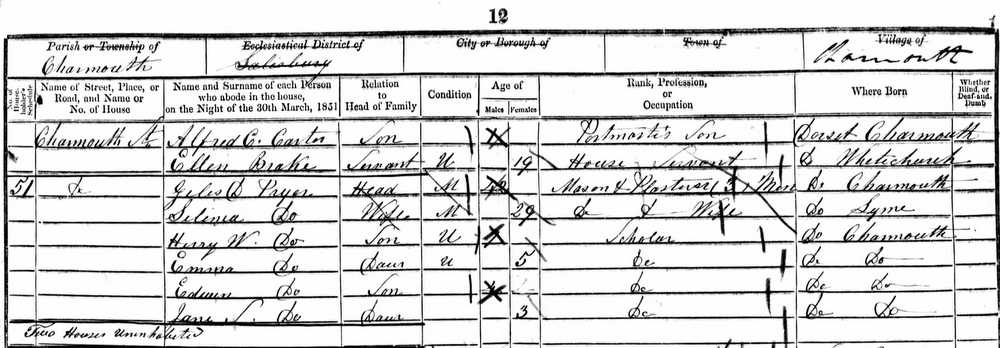 12
Parish or Township of Ecclesiastical District of City or Borough of Town of Village of
Charmouth Salisbury Charmouth
No. of House-holder's Schedule Name of Street, Place, or Road, and Name or No. of House Name and Surname of each Person who abode in the house, on the Night of the 30th March, 1851 Relation to Head of Family Condition Age of Males Females Rank, Profession, or Occupation Where Born Whether Blind, or Deaf-and-Dumb
Charmouth St Alfred C. Carter Son Postmaster's Son Dorset Charmouth
Ellen Brake Servant U 19 House Servant Do Whitichurch
51 Do Giles D Pryer Head M Mason & Plasterer 3 Men Do Charmouth
Selina Do Wife M 29 Do & Wife Do Lyme
Henry W. Do Son U Scholar Do Charmouth
Emma Do Daur U 5 Do Do Do
Edwin Do Son Do Do Do
Jane S. Do Daur 3 Do Do Do
Two Houses Uninhabited